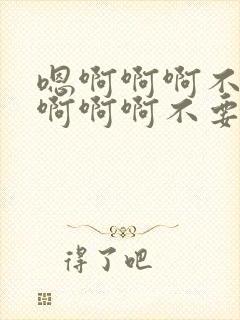 嗯啊啊啊不
啊啊啊不要
得了吧